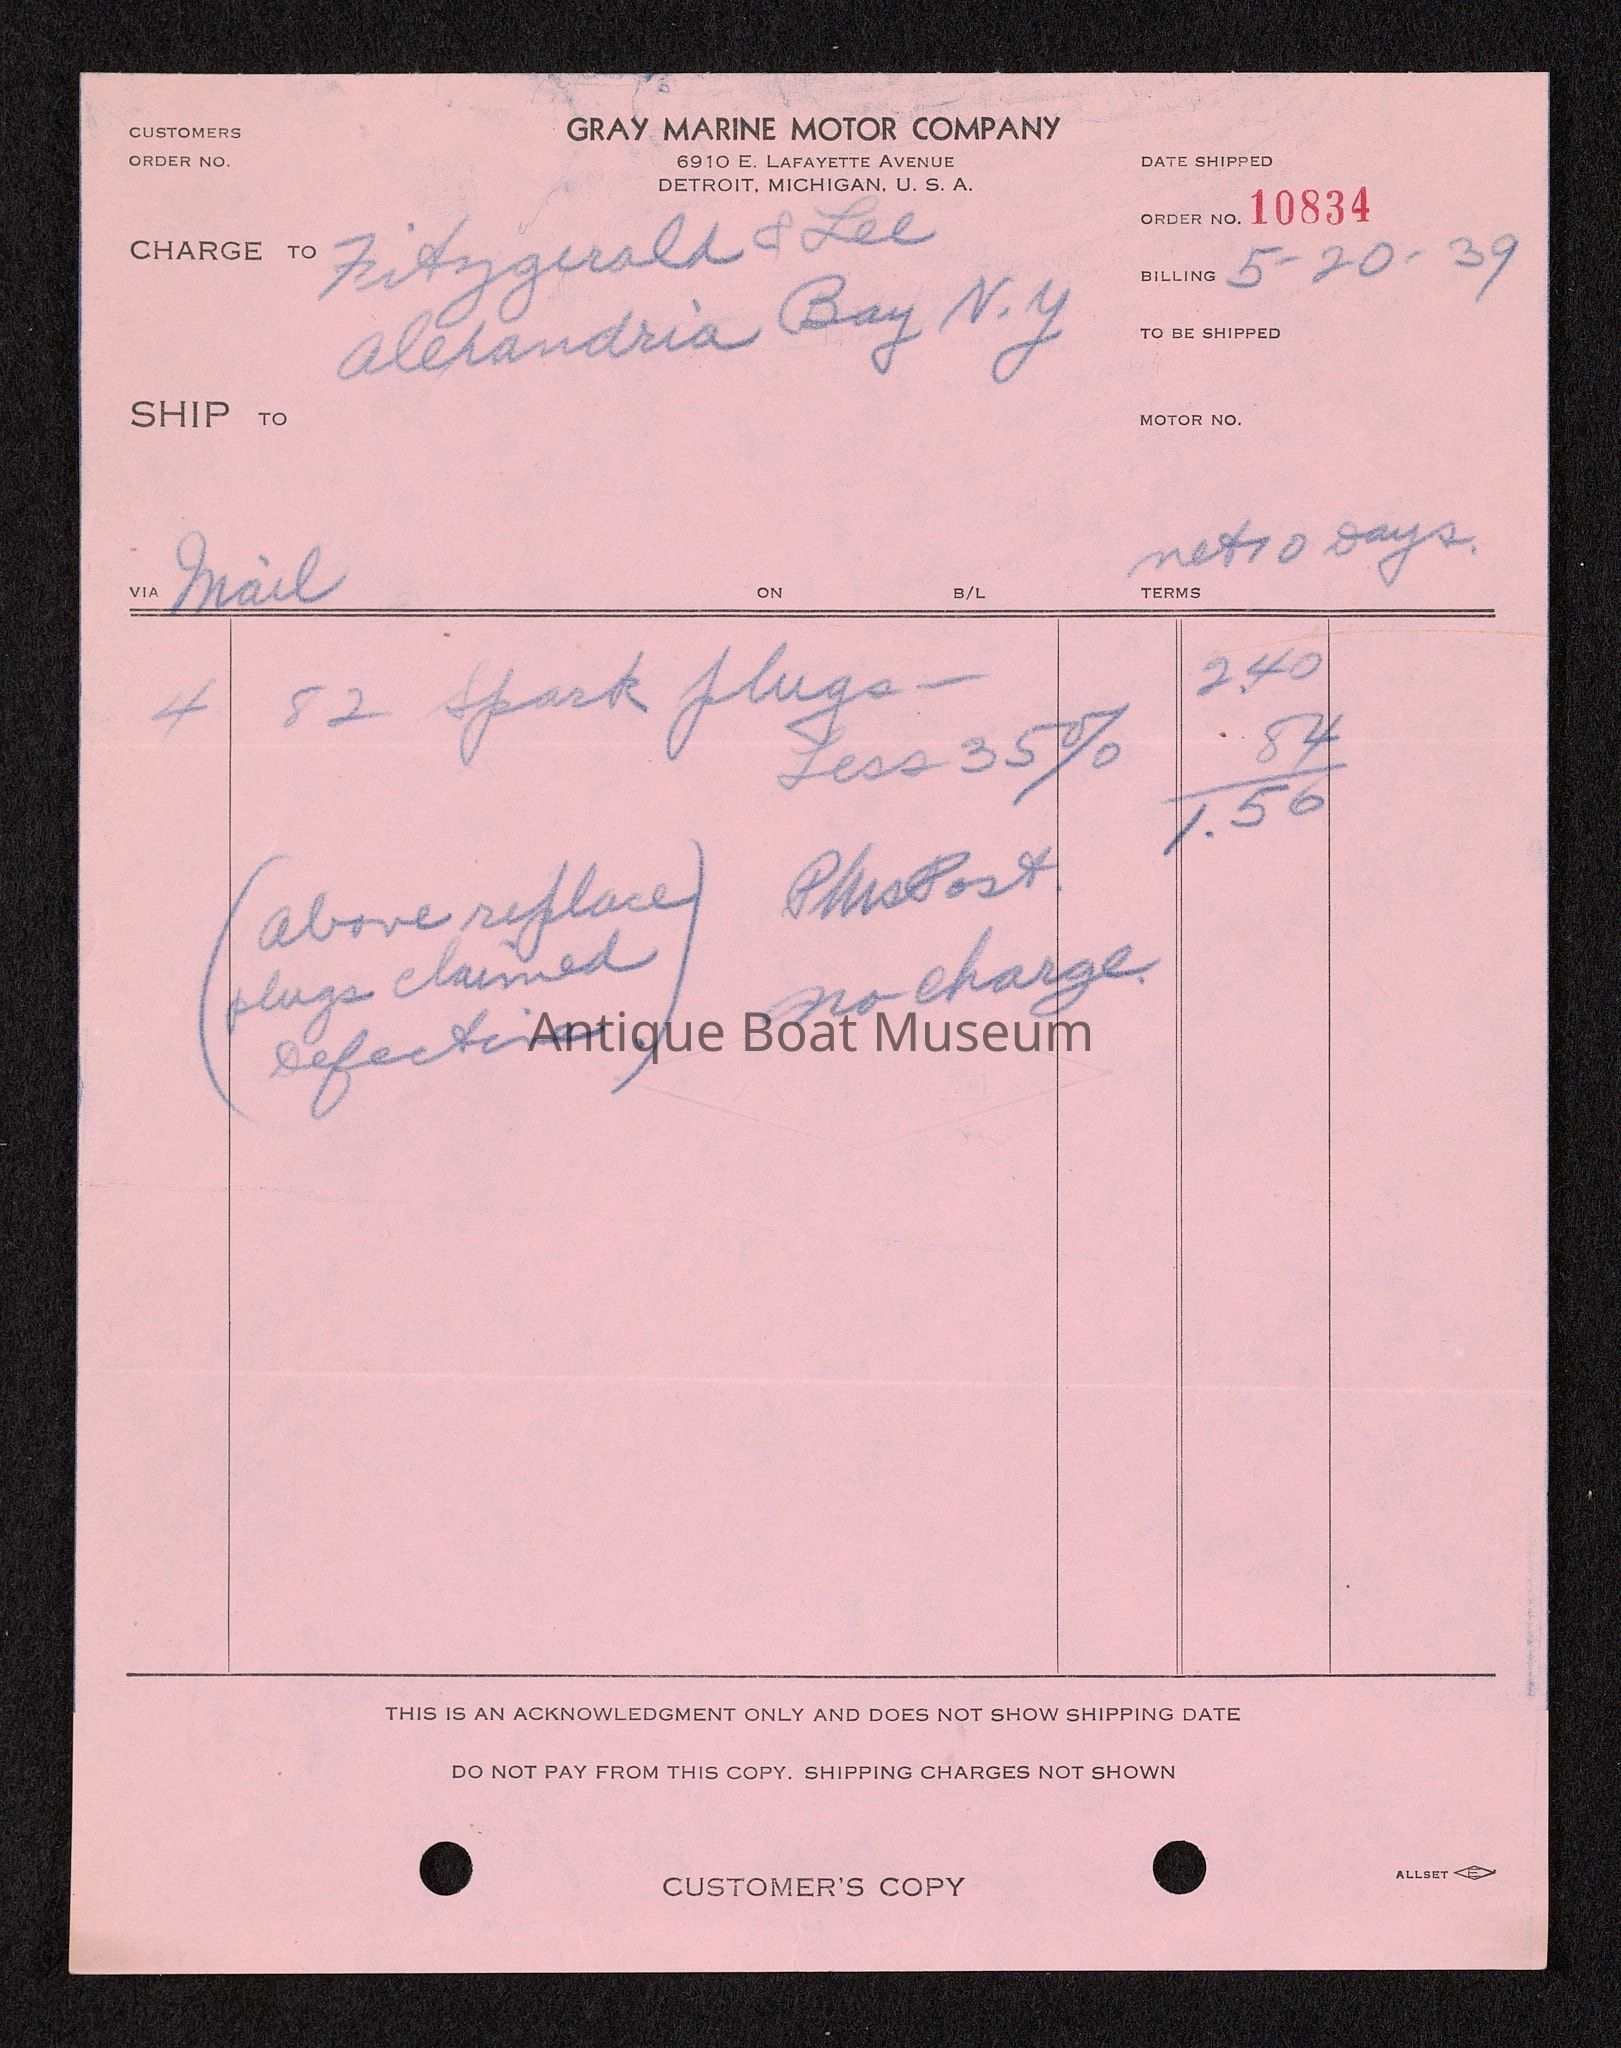 CUSTOMERS
ORDER NO.
GRAY MARINE MOTOR COMPANY
6910 E. LAFAYETTE AVENUE
DETROIT, MICHIGAN, U. S. A.
DATE SHIPPED
ORDER NO. 10834
CHARGE TO Fitzgerald & Lee
Alexandria Bay N.Y
BILLING 5-20-39
TO BE SHIPPED
SHIP TO
MOTOR NO.
VIA Mail
ON
B/L
TERMS net 10 Days.
4 82 Spark plugs — 2.40
Less 35% 84
1.56
(above replace
plugs claimed
Defective.)
Plus Post.
no charge.
Antique Boat Museum
THIS IS AN ACKNOWLEDGMENT ONLY AND DOES NOT SHOW SHIPPING DATE
DO NOT PAY FROM THIS COPY. SHIPPING CHARGES NOT SHOWN
CUSTOMER'S COPY
ALLSET E